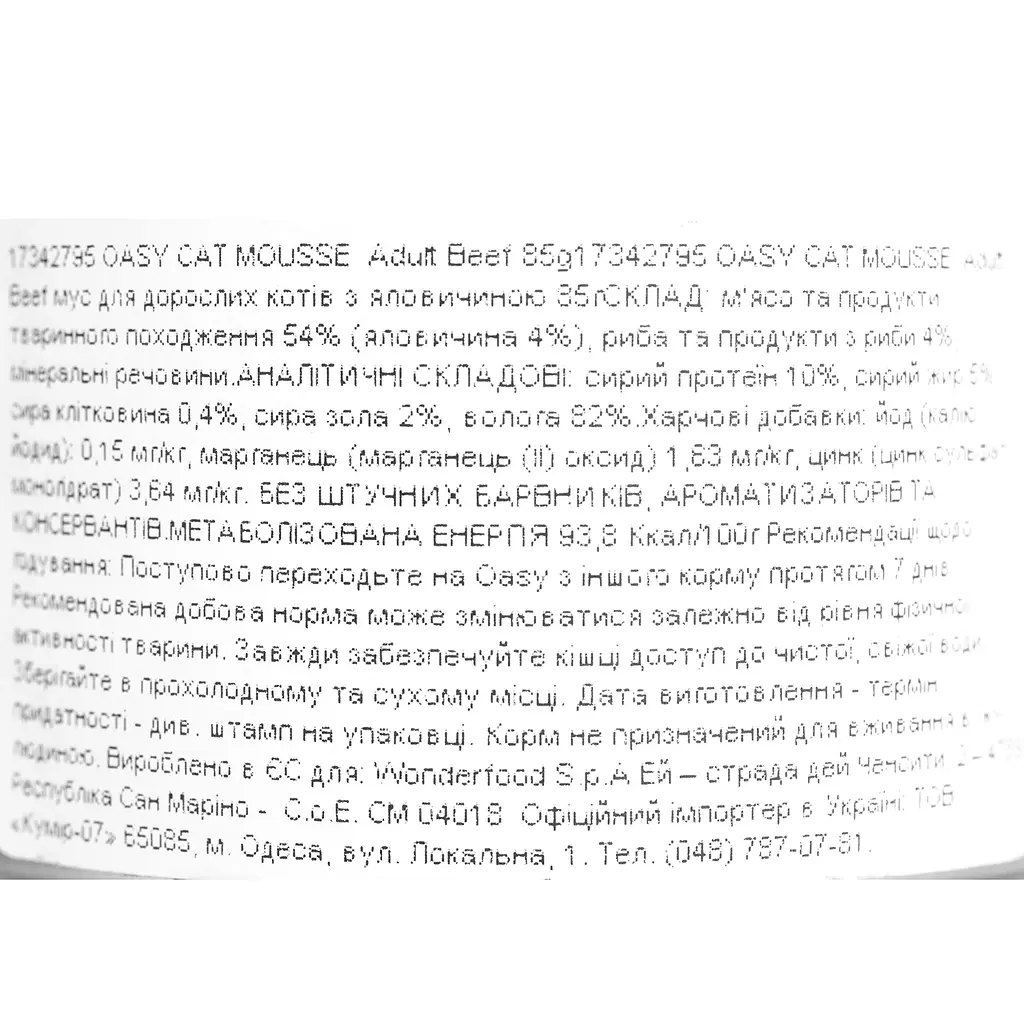 17342795 OASY CAT MOUSSE Adult Beef 85g17342795 OASY CAT MOUSSE Adult
Beef мус для дорослих котів з яловичиною 85гСКЛАД: м'ясо та продукти
тваринного походження 54% (яловичина 4%), риба та продукти з риби 4%,
мінеральні речовини.АНАЛІТИЧНІ СКЛАДОВІ: сирий протеїн 10%, сирий жир 5%
сира клітковина 0,4%, сира зола 2%, волога 82%.Харчові добавки: йод (калію
йодид): 0,15 мг/кг, марганець (марганець (II) оксид) 1,63 мг/кг, цинк (цинк сульфат
моногідрат) 3,64 мг/кг. БЕЗ ШТУЧНИХ БАРВНИКІВ, АРОМАТИЗАТОРІВ ТА
КОНСЕРВАНТІВ.МЕТАБОЛІЗОВАНА ЕНЕРГІЯ 93,8 Ккал/100г Рекомендації щодо
годування: Поступово переходьте на Oasy з іншого корму протягом 7 днів
Рекомендована добова норма може змінюватися залежно від рівня фізичної
активності тварини. Завжди забезпечуйте кішці доступ до чистої, свіжої води
Зберігайте в прохолодному та сухому місці. Дата виготовлення - термін
придатності - див. штамп на упаковці. Корм не призначений для вживання в
людиною. Вироблено в ЄС для: Wonderfood S.p.A Ей – страда дей
Республіка Сан Маріно - C.o.E. СМ 04018 Офіційний імпортер в Україні: ТОВ
«Кумір-07» 65085, м. Одеса, вул. Локальна, 1. Тел. (048) 787-07-81.